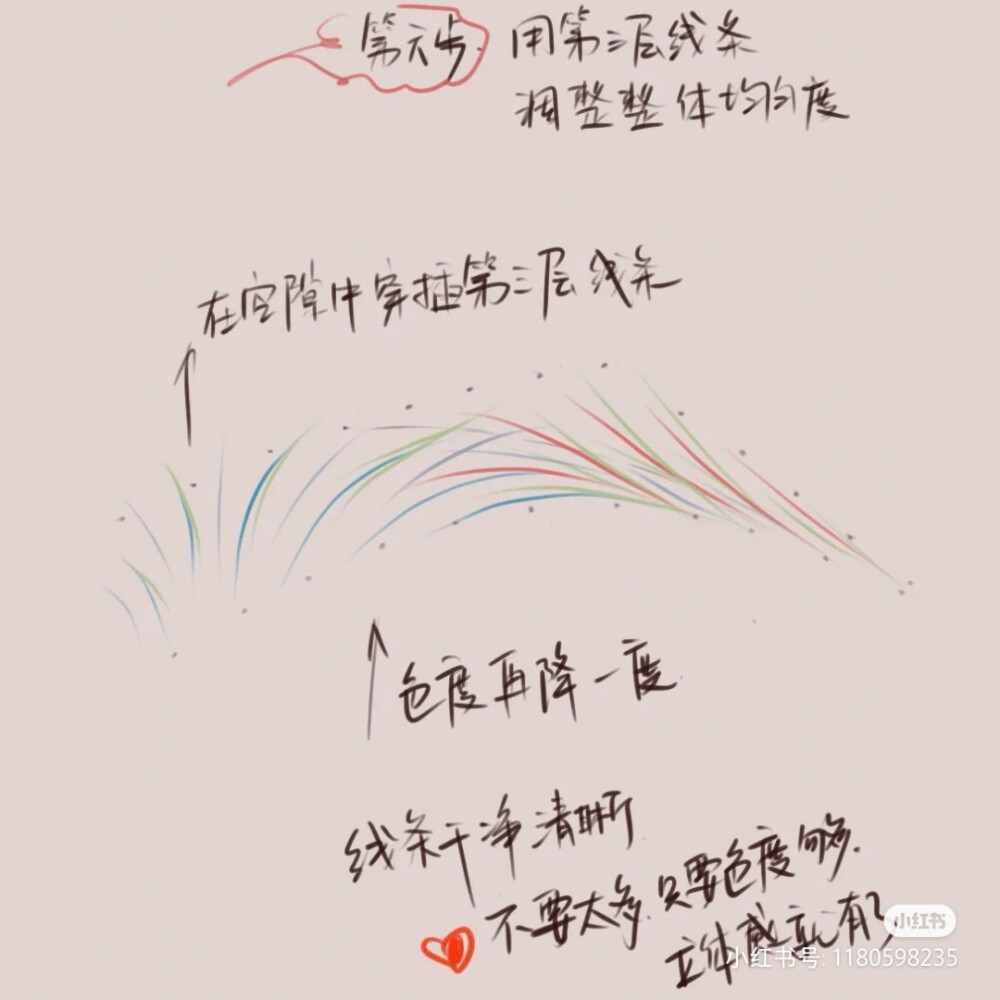 第六步.
用第三层线条
调整整体均匀度
在空隙中穿插第三层线条
色度再降一度
线条干净清晰
不要太多.只要色度够.
立体感就有了
小红书
小红书号: 1180598235